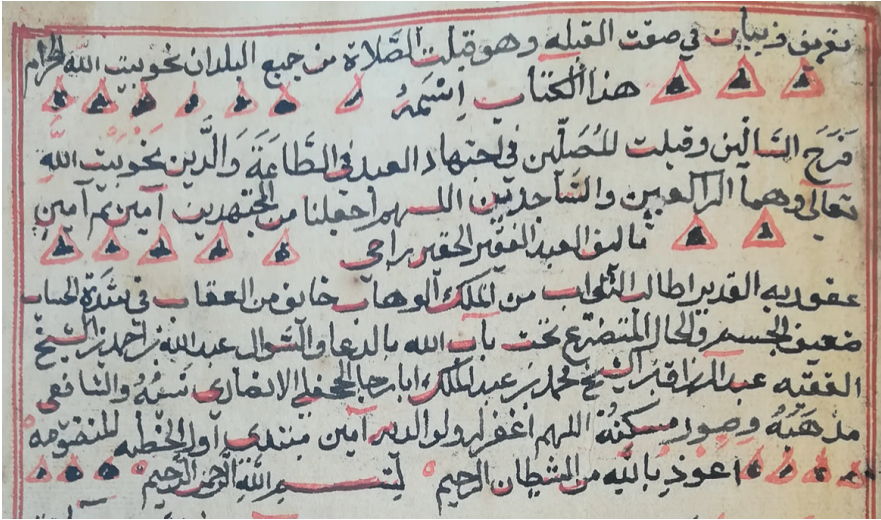 تعريف وبيان في صفت القبله وهو قبلت الصَّلاة من جميع البلدان نحو بيت الله الحرام
هذا الكتاب اِسْمَهُ
فَرَحَ السَّالِين وقبلت للمُصَلّين في اجتهاد العبد في الطَّاعَةَ وَالَّدين نحو بَيْت اللَّه
تعالى وهما الراكعين والسَّاجدين اللهم اجعلنا من المجتهدين آمين ثم آمين
تاليف العبد الفقير الحقير راجى
عفو ربه القدير طالب الثواب من الملك الوهاب خايف من العقاب في شدة الحساب
ضعيف الجسم والحال المتضرع تحت باب الله بالدعا والسُّوال عبد الله بن احمد بن الشيخ
الفقيه عبد بن الشيخ محمد بن عبد الملك الانصارى نَسَبُهُ والشافعي
مذهَبُهُ وصور مسكنهُ اللهم اغفر له ولوالديه آمين مبتدى اول الخطبه المنضومه
اعوذ بالله من الشيطان الرجيم بسم الله الرحمن الرحيم